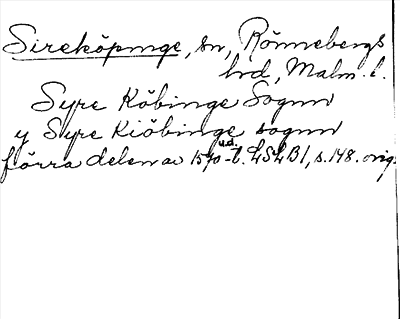 Sireköpinge, sn, Rönnebergs
hd, Malm. l.
Syre Köbinge Sognn
y Syre Kiöbinge sognn
förra delen av 1570-t. LSLB1, s. 148. orig.